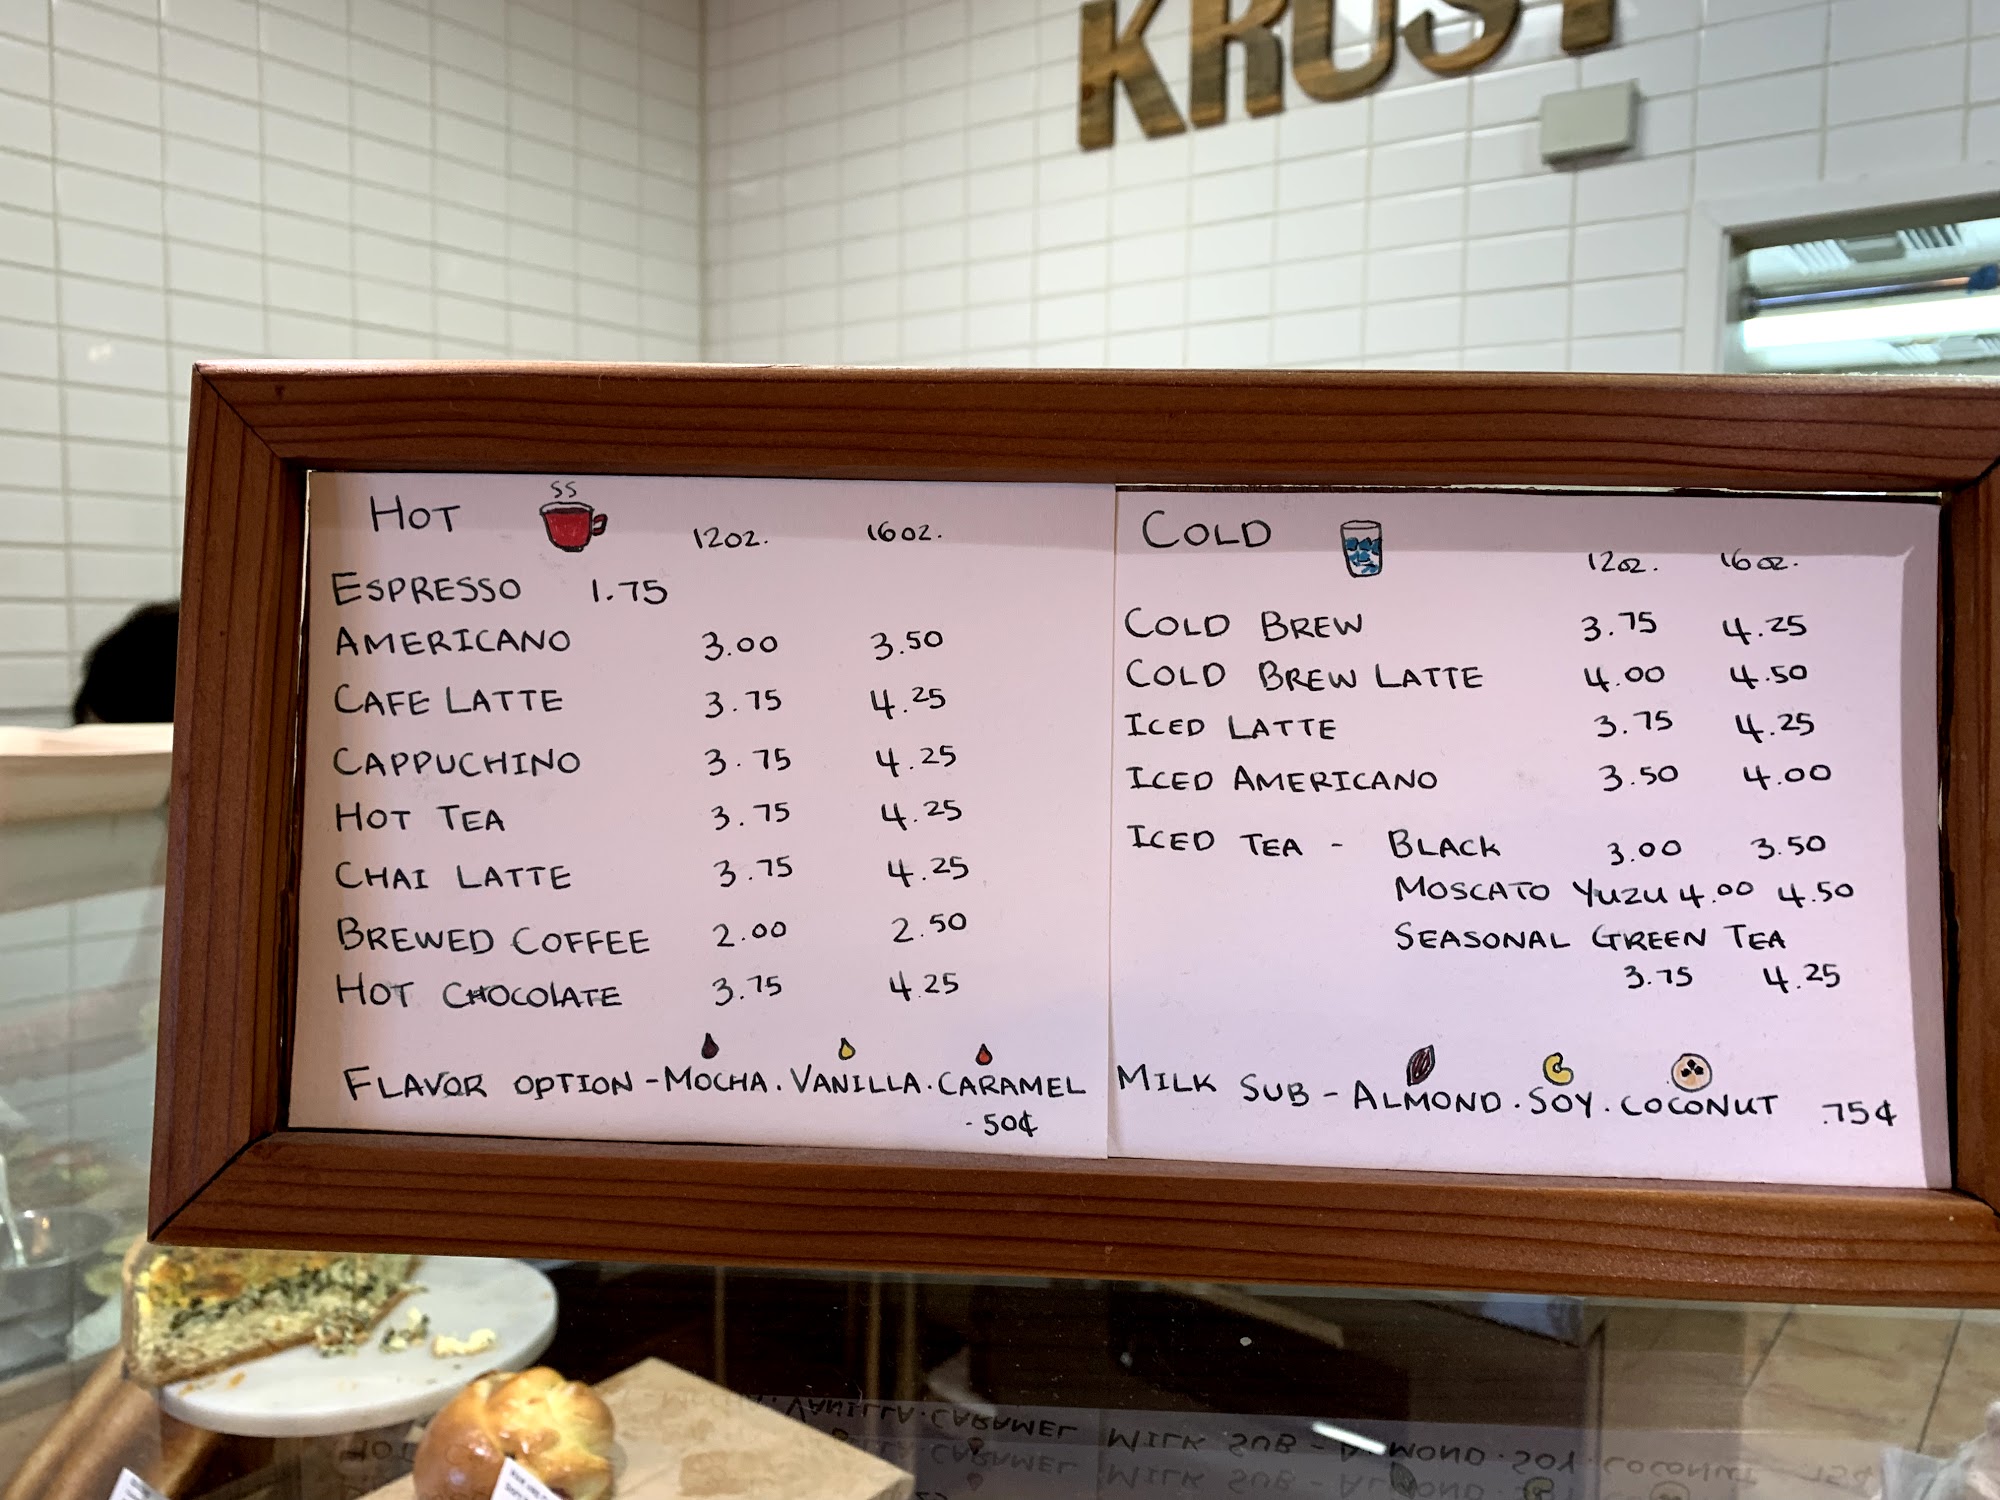 KRUST
HOT 12oz. 16oz.
ESPRESSO 1.75
AMERICANO 3.00 3.50
CAFE LATTE 3.75 4.25
CAPPUCHINO 3.75 4.25
HOT TEA 3.75 4.25
CHAI LATTE 3.75 4.25
BREWED COFFEE 2.00 2.50
HOT CHOCOLATE 3.75 4.25
FLAVOR OPTION - MOCHA . VANILLA . CARAMEL
.50¢
COLD 12oz. 16oz.
COLD BREW 3.75 4.25
COLD BREW LATTE 4.00 4.50
ICED LATTE 3.75 4.25
ICED AMERICANO 3.50 4.00
ICED TEA - BLACK 3.00 3.50
MOSCATO YUZU 4.00 4.50
SEASONAL GREEN TEA
3.75 4.25
MILK SUB - ALMOND . SOY . COCONUT .75¢